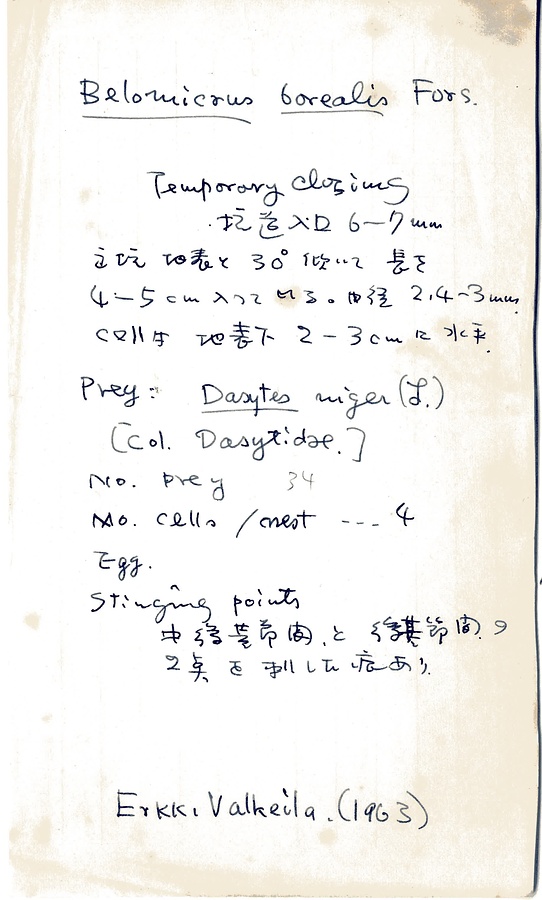 Belomicrus borealis Fors.
Temporary closing
・坑道入口 6―7mm
主坑 地表と 30° 傾いて 長さ
4―5cm 入っている。内径 2.4~3mm.
cellは 地表下 2-3cmに 水平.
Prey: Dasytes niger (L.)
[Col. Dasytidae.]
No. prey 34
No. cells / nest --- 4
Egg.
Stinging points
中後基節間, と 後基節間の
2点を刺した痕あり.
Erkki Valkeila. (1963)